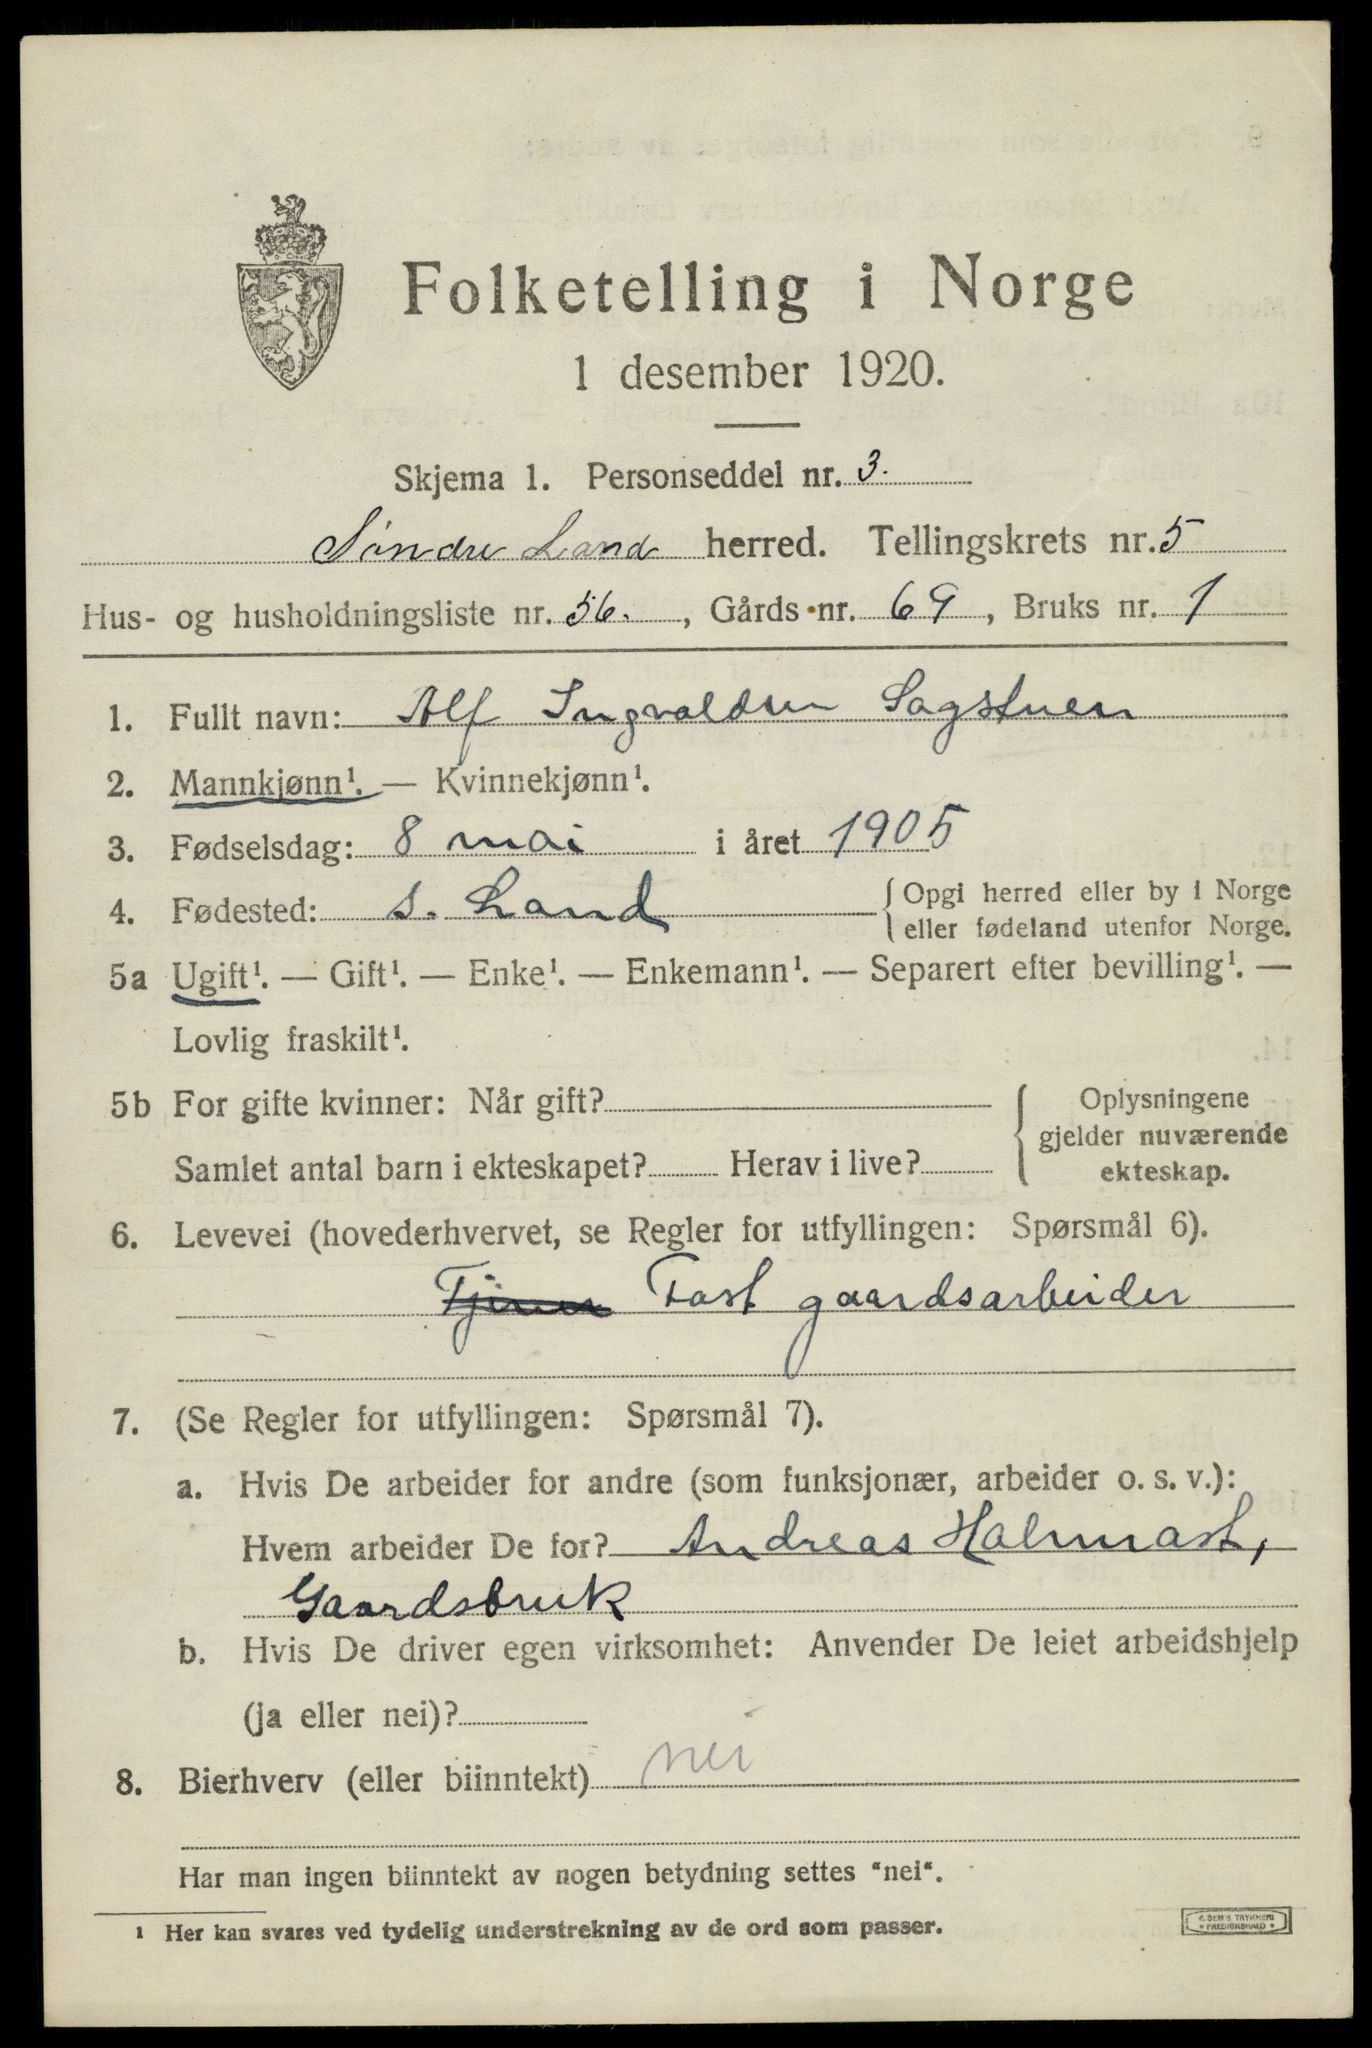 Folketelling i Norge
1 desember 1920.
Skjema 1. Personseddel nr. 3.
Søndre Land herred. Tellingskrets nr. 5
Hus- og husholdningsliste nr. 56. , Gårds nr. 69 , Bruks nr. 1
1. Fullt navn: Alf Ingvaldsen Sagstuen
2. Mannkjønn¹. — Kvinnekjønn¹.
3. Fødselsdag: 8 mai i året 1905
4. Fødested: S. Land { Opgi herred eller by i Norge
eller fødeland utenfor Norge.
5a Ugift¹. — Gift¹. — Enke¹. — Enkemann¹. — Separert efter bevilling¹. —
Lovlig fraskilt¹.
5b For gifte kvinner: Når gift?
Samlet antal barn i ekteskapet? Herav i live?
Oplysningene
gjelder nuværende
ekteskap.
6. Levevei (hovederhvervet, se Regler for utfyllingen: Spørsmål 6).
Tjener Fast gaardsarbeider
7. (Se Regler for utfyllingen: Spørsmål 7).
a. Hvis De arbeider for andre (som funksjonær, arbeider o. s. v.):
Hvem arbeider De for? Andreas Halmrast,
Gaardsbruk
b. Hvis De driver egen virksomhet: Anvender De leiet arbeidshjelp
(ja eller nei)?
8. Bierhverv (eller biinntekt) nei
Har man ingen biinntekt av nogen betydning settes "nei".
¹ Her kan svares ved tydelig understrekning av de ord som passer.